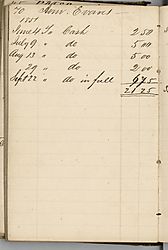 To Amr. Evans
1851
June 4 To Cash 2 50
July 9 " do 5 00
Aug 13 " do 5 00
" 29 " do 2 00
Sept 22 " do in full 6 75
21 25